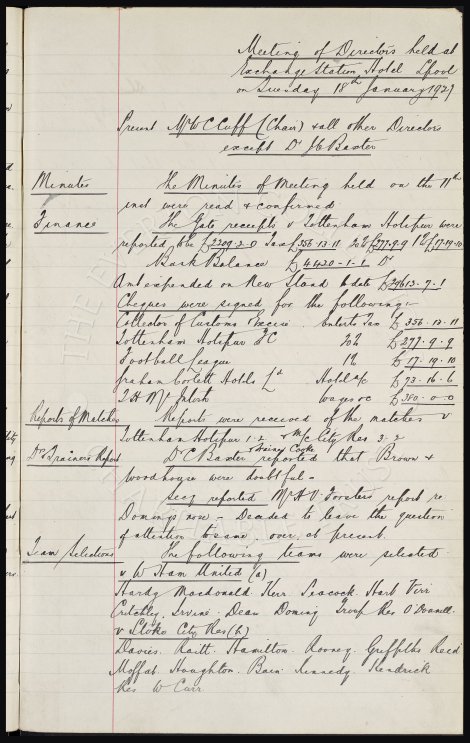 Meeting of Directors held at
Exchange Station Hotel L'pool
on Tuesday 18th January 1927
Present Mr W C Cuff (Chair) & all other Directors
except Dr J C Baxter
Minutes The Minutes of Meeting held on the 11th
inst were read & confirmed
Finance The Gate receipts v Tottenham Hotspur were
reported to be £2209-2-0 Tax £356-13-11 20% £277-9-9 1% £17-19-10
Bank Balance £4420-1-1 Dr
Amt expended on New Stand to date £29613-7-1
Cheques were signed for the following:-
Collector of Customs & Excise Enterts Tax £356-13-11
Tottenham Hotspur FC 20% £277-9-9
Football League 1% £17-19-10
Graham Corlett Hotels Ld Hotel a/c £73-16-6
T H McIntosh wages &c £380-0-0
Reports of Matches Reports were received of the matches v
Tottenham Hotspur 1-2 & M/c City Res 3-2
Drs & Trainers Report Dr C Baxter & Trainer Cooke reported that Brown &
Woodhouse were doubtful -
Secy reported Mr H V Forsters report re
Domings nose - Decided to leave the question
of attention to same over, at present.
Team Selections The following teams were selected
v W Ham United (a)
Hardy Macdonald Kerr Peacock Hart Virr
Critchley Irvine Dean Doming Troup Res O'Donnell
v Stoke City Res (h)
Davies. Raitt. Hamilton. Rooney. Griffiths Reid
Moffat. Houghton. Bain. Kennedy. Kendrick
Res W Curr